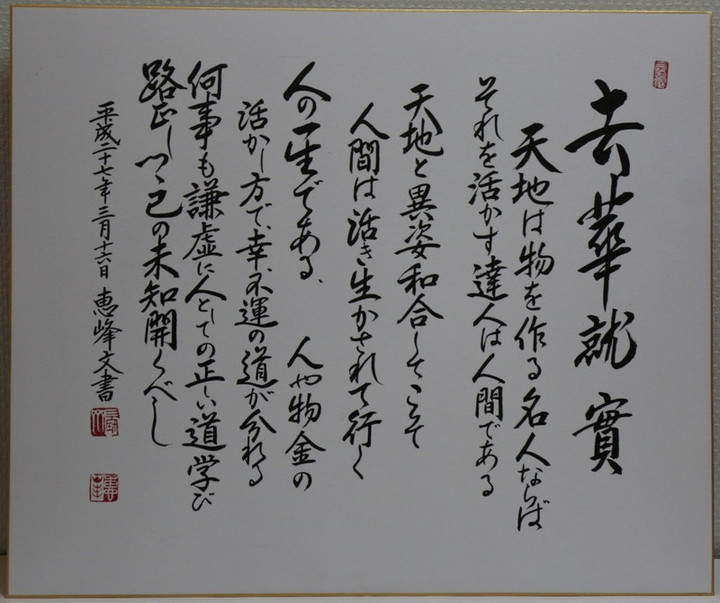 去華就實
天地は物を作る名人ならば
それを活かす達人は人間である
天地と異姿和合してこそ
人間は活き生かされて行く
人の一生である、 人や物金の
活かし方で、幸不運の道が分れる
何事も謙虚に人としての正しい道学び
路正しつゝ己の未知開くべし
平成二十七年三月十六日 恵峰文書